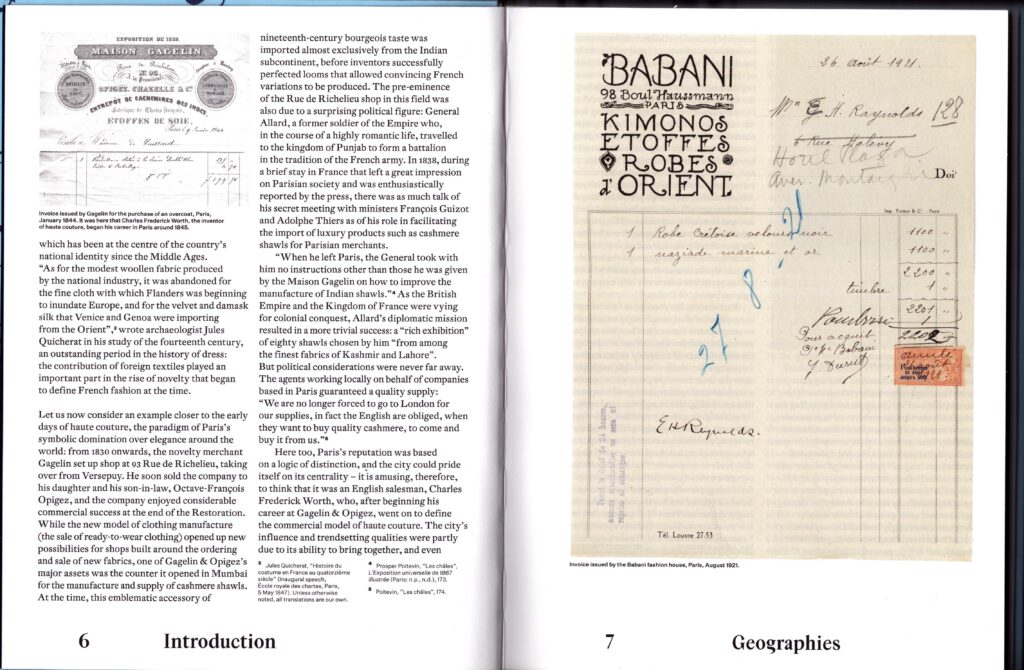 EXPOSITION DE 1839.
MAISON GAGELIN
Rue de Richelieu
N° 93
OPIGEZ, CHAZELLE & Cie
ENTREPÔT DE CACHEMIRES DES INDES,
Fabrique de Châles français,
ETOFFES DE SOIE,
Invoice issued by Gagelin for the purchase of an overcoat, Paris,
January 1844. It was here that Charles Frederick Worth, the inventor
of haute couture, began his career in Paris around 1845.
which has been at the centre of the country's
national identity since the Middle Ages.
"As for the modest woollen fabric produced
by the national industry, it was abandoned for
the fine cloth with which Flanders was beginning
to inundate Europe, and for the velvet and damask
silk that Venice and Genoa were importing
from the Orient",³ wrote archaeologist Jules
Quicherat in his study of the fourteenth century,
an outstanding period in the history of dress:
the contribution of foreign textiles played an
important part in the rise of novelty that began
to define French fashion at the time.
Let us now consider an example closer to the early
days of haute couture, the paradigm of Paris's
symbolic domination over elegance around the
world: from 1830 onwards, the novelty merchant
Gagelin set up shop at 93 Rue de Richelieu, taking
over from Versepuy. He soon sold the company to
his daughter and his son-in-law, Octave-François
Opigez, and the company enjoyed considerable
commercial success at the end of the Restoration.
While the new model of clothing manufacture
(the sale of ready-to-wear clothing) opened up new
possibilities for shops built around the ordering
and sale of new fabrics, one of Gagelin & Opigez's
major assets was the counter it opened in Mumbai
for the manufacture and supply of cashmere shawls.
At the time, this emblematic accessory of
nineteenth-century bourgeois taste was
imported almost exclusively from the Indian
subcontinent, before inventors successfully
perfected looms that allowed convincing French
variations to be produced. The pre-eminence
of the Rue de Richelieu shop in this field was
also due to a surprising political figure: General
Allard, a former soldier of the Empire who,
in the course of a highly romantic life, travelled
to the kingdom of Punjab to form a battalion
in the tradition of the French army. In 1838, during
a brief stay in France that left a great impression
on Parisian society and was enthusiastically
reported by the press, there was as much talk of
his secret meeting with ministers François Guizot
and Adolphe Thiers as of his role in facilitating
the import of luxury products such as cashmere
shawls for Parisian merchants.
"When he left Paris, the General took with
him no instructions other than those he was given
by the Maison Gagelin on how to improve the
manufacture of Indian shawls."⁴ As the British
Empire and the Kingdom of France were vying
for colonial conquest, Allard's diplomatic mission
resulted in a more trivial success: a "rich exhibition"
of eighty shawls chosen by him "from among
the finest fabrics of Kashmir and Lahore".
But political considerations were never far away.
The agents working locally on behalf of companies
based in Paris guaranteed a quality supply:
"We are no longer forced to go to London for
our supplies, in fact the English are obliged, when
they want to buy quality cashmere, to come and
buy it from us."⁵
Here too, Paris's reputation was based
on a logic of distinction, and the city could pride
itself on its centrality – it is amusing, therefore,
to think that it was an English salesman, Charles
Frederick Worth, who, after beginning his
career at Gagelin & Opigez, went on to define
the commercial model of haute couture. The city's
influence and trendsetting qualities were partly
due to its ability to bring together, and even
3 Jules Quicherat, "Histoire du
costume en France au quatorzième
siècle" (inaugural speech,
École royale des chartes, Paris,
5 May 1847). Unless otherwise
noted, all translations are our own.
4 Prosper Poitevin, "Les châles",
L'Exposition universelle de 1867
illustrée (Paris: n.p., n.d.), 173.
5 Poitevin, "Les châles", 174.
6 Introduction
BABANI
98 Boul. Haussmann
PARIS
KIMONOS
ETOFFES
ROBES
d'ORIENT
26 août 1921.
H. Raynolds 128
6 Rue Halévy
Hotel Plaza
Aven. Montaigne
Doit
Imp. Tolmer & Cie Paris
1 Robe Crétoise velours noir 1100 "
1 naziade marine et or 1100 "
2200 "
timbre 1 "
2201 "
1
2202
Pour acquit
Babani
27 8 21
EHReynolds.
Tél. Louvre 27-53
Invoice issued by the Babani fashion house, Paris, August 1921.
7 Geographies